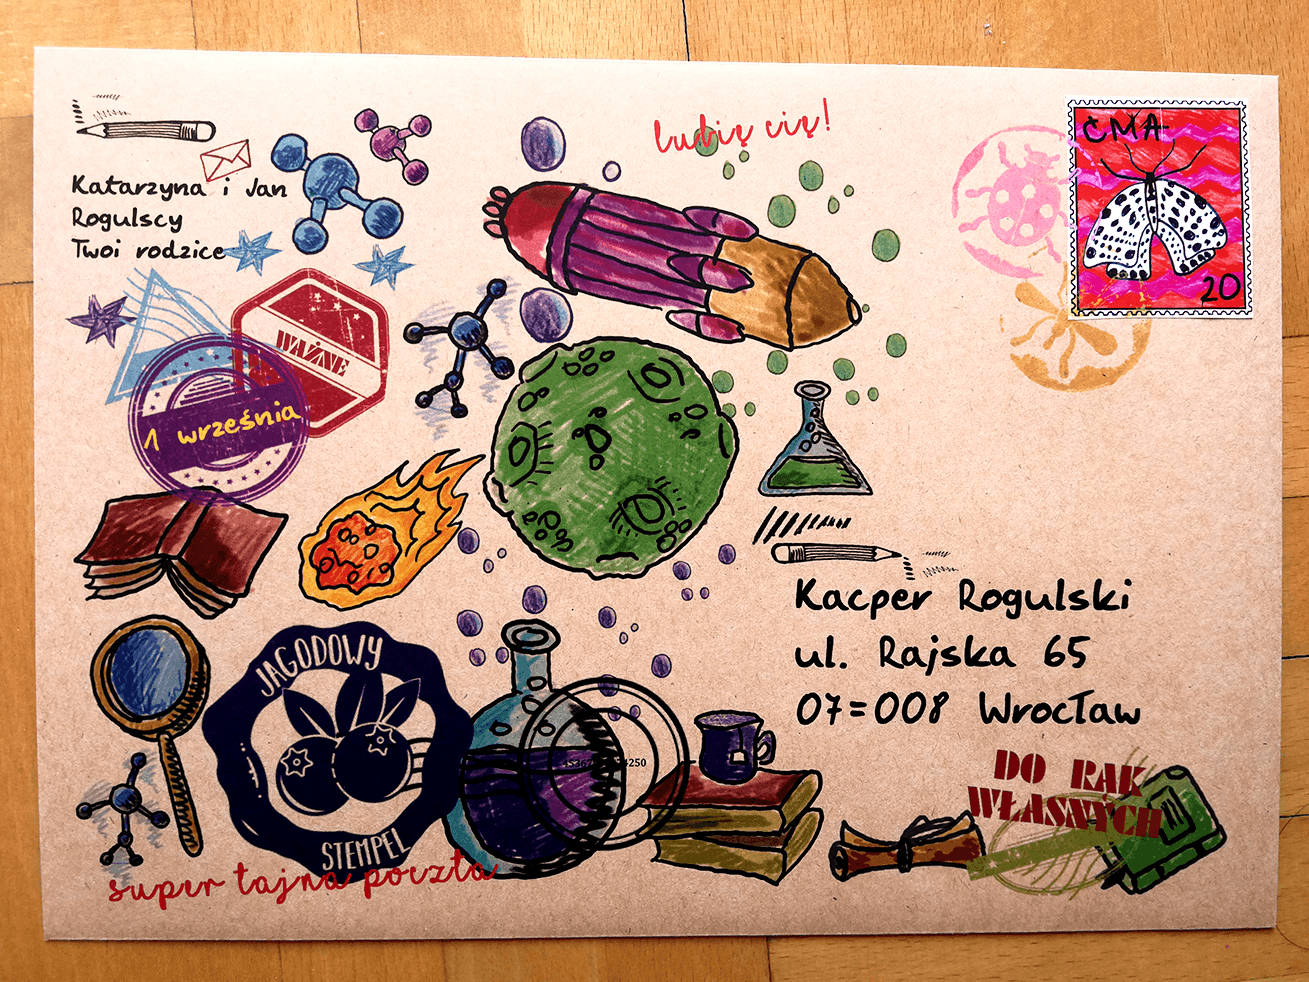 lubię cię!
ĆMA
20
Katarzyna i Jan
Rogulscy
Twoi rodzice
WAŻNE
1 września
Kacper Rogulski
ul. Rajska 65
07=008 Wrocław
JAGODOWY
STEMPEL
DO RĄK
WŁASNYCH
super tajna poczta